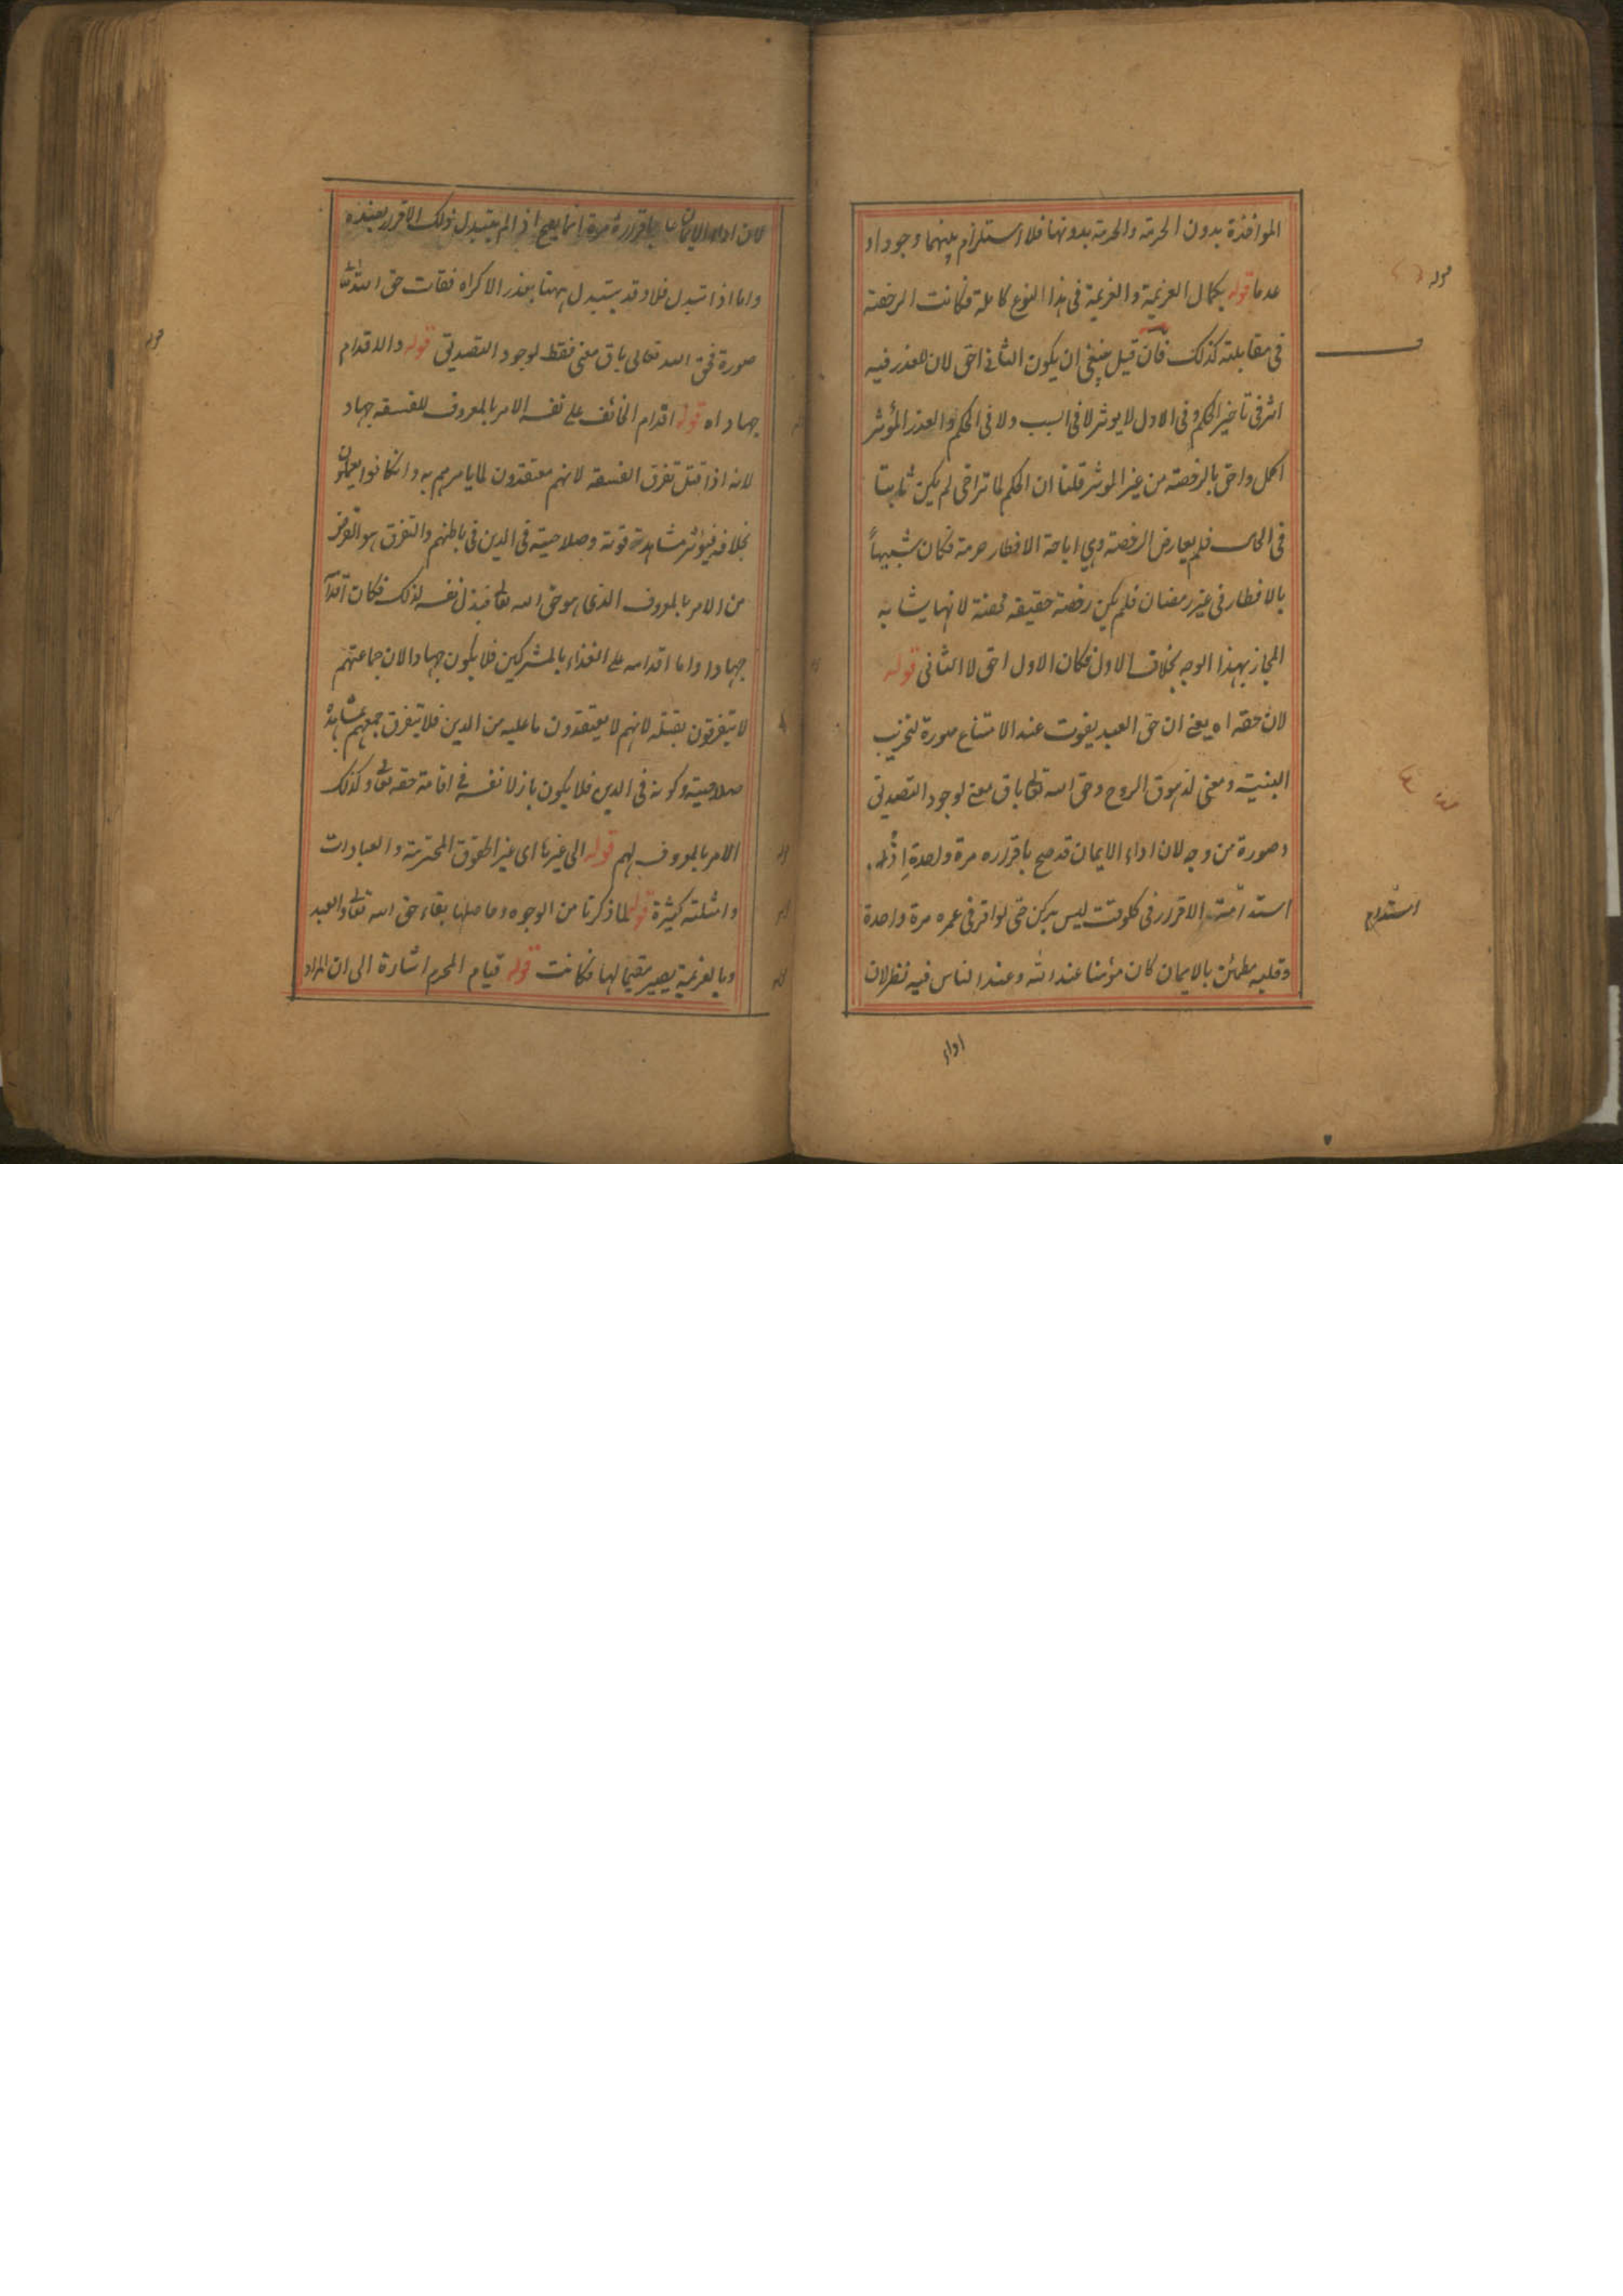 المواخذة بدون الحرمة والحرمة بدونها فلا استلزام بينهما وجودا و
عدما قوله بكمال العزيمة والعزيمة فى هذا النوع كاملة فكانت الرخصة
فى مقابلته كذلك فان قيل ينبغى ان يكون الثانى احق لان للعذر فيه
اثر فى تاخير الحكم وفى الاول لا يوثر لا فى السبب ولا فى الحكم والعذر المؤثر
اكمل واحق بالرخصة من غير الموثر قلنا ان الحكم لما تراخى لم يكن ثابتا
فى الحال فلم يعارض الرخصة وهي اباحة الافطار حرمة فكان شبيهاً
بالافطار فى غير رمضان فلم يكن رخصة حقيقه محضة لانها يشابه
المجاز بهذا الوجه بخلاف الاول فكان الاول احق لا الثانى قوله
لان حقه اه يعنى ان حق العبد يفوت عند الامتناع صورة لتخريب
البنية ومعنى لذهوق الروح وحق الله تعالى باق معنى لوجود التصديق
وصورة من وجه لان اداء الايمان قد صح باقراره مرة واحدة اذ
استدامة الاقرار فى كل وقت ليس بركن حتى لو اقر فى عمره مرة واحدة
وقلبه مطمئن بالايمان كان مؤمنا عند الله وعند الناس فيه نظر لان
قوله
استدام
اداء
لان اداء الايمان باقراره مرة انما يصح اذا لم يتبدل ذلك الاقرار بضده
واما اذا تبدل فلا وقد يتبدل ههنا بعذر الاكراه ففات حق الله تعالى
صورة فحق الله تعالى باق معنى فقط لوجود التصديق قوله والاقدام
جهاد اه قوله اقدام الخائف على نفسه الامر بالمعروف للفسقه جهاد
لانه اذا قتل تفرق الفسقة لانهم معتقدون لما يامرهم به وان كانوا يعملون
بخلافه فيؤثر مشاهدة قوته وصلاحيته فى الدين فى باطنهم والتفرق هو الغرض
من الامر بالمعروف الذى هو حق الله تعالى فبذل نفسه لذلك فكان
جهادا واما اقدامه على الغذاء بالمشركين فلا يكون جهادا لان جماعتهم
لا يتفرقون بقتله لانهم لا يعتقدون ما عليه من الدين فلا يتفرق جمعهم بمشاهدة
صلاحيته وكونه فى الدين فلا يكون باذلا نفسه فى اقامة حقه تعالى وكذلك
الامر بالمعروف لهم قوله الى غيرها اى غير الحقوق المحترمة والعبادات
وامثلته كثيرة قوله لما ذكرنا من الوجوه وحاصلها بقاء حق الله تعالى والعبد
وبالعزيمة يصير مقيما لها فكانت قوله قيام المحرم اشارة الى ان المراد
قوله